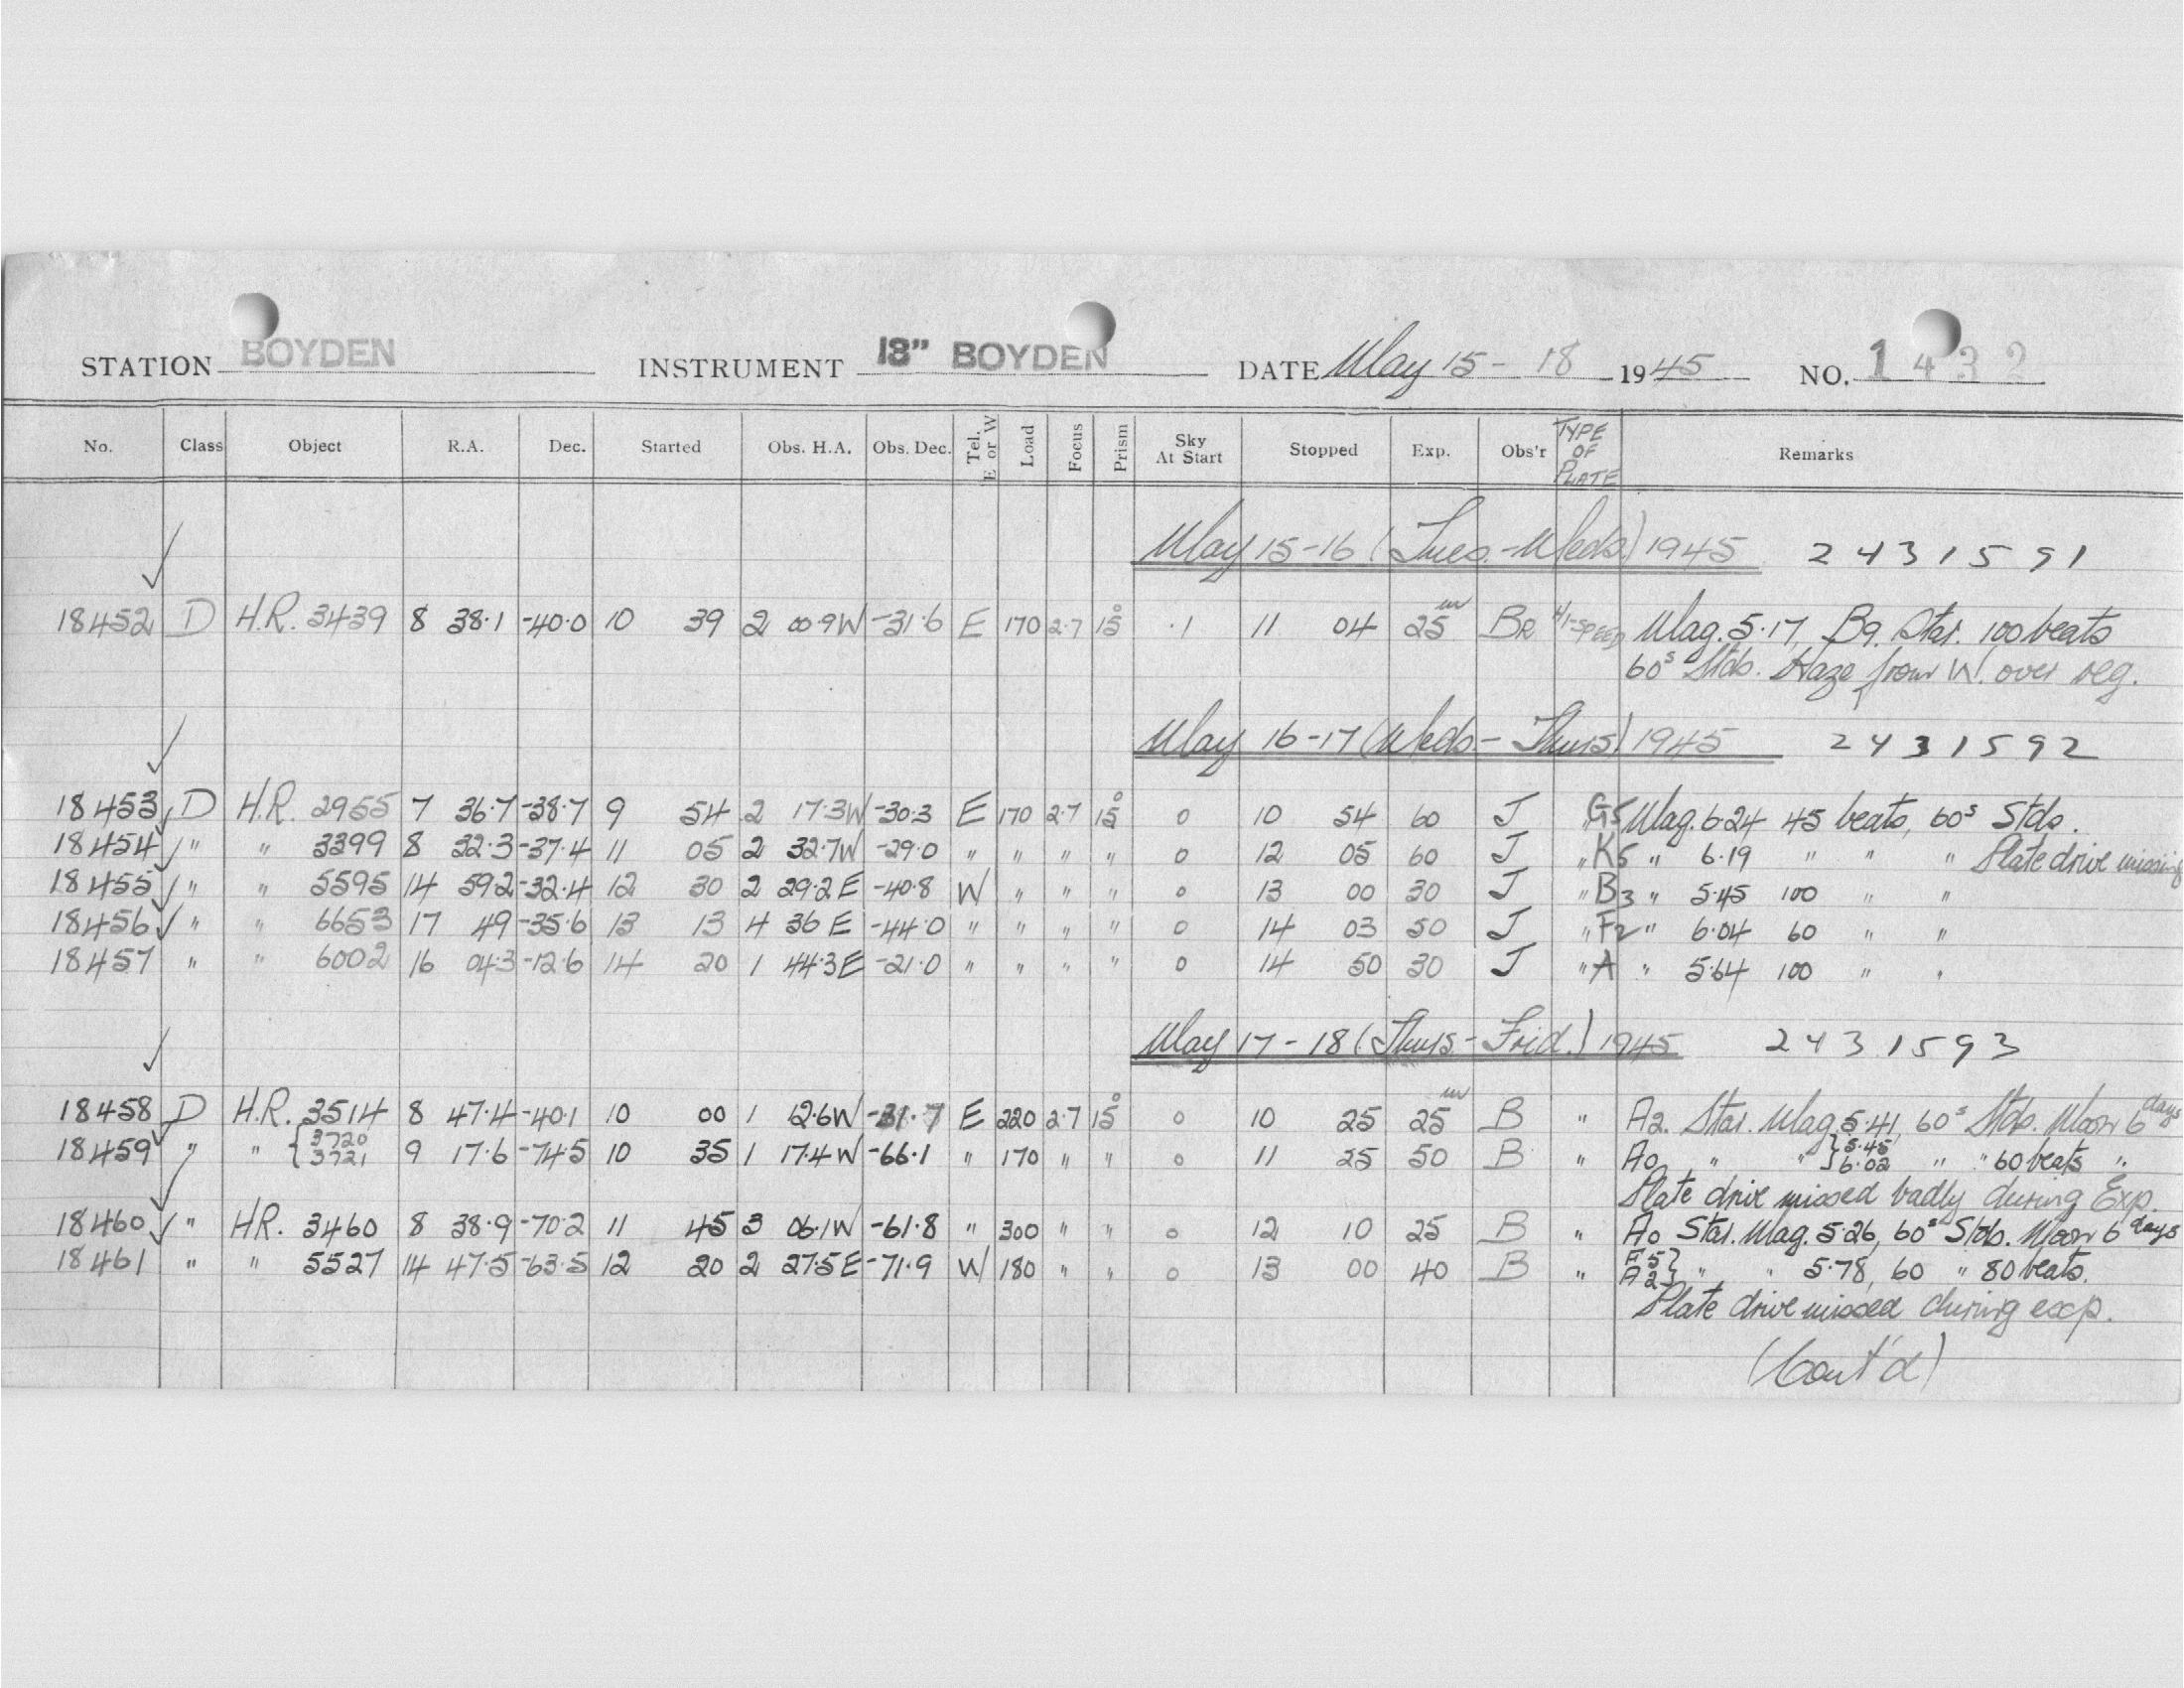 STATION BOYDEN INSTRUMENT 18" BOYDEN DATE May 15 - 18 1945 NO. 1432
No. Class Object R.A. Dec. Started Obs. H.A. Obs. Dec. Tel. E or W Load Focus Prism Sky At Start Stopped Exp. Obs'r TYPE OF PLATE Remarks
May 15-16 (Tues.-Weds.) 1945 2431591
18452 D H.R. 3439 8 38.1 -40.0 10 39 2 00.9W -31.6 E 170 2.7 15° .1 11 04 25m BR H-SPEED Mag. 5.17, B9. Star. 100 beats
60s Stds. Haze from W. over reg.
May 16-17 (Weds-Thurs) 1945 2431592
18453 D H.R. 2955 7 36.7 -38.7 9 54 2 17.3W -30.3 E 170 2.7 15° 0 10 54 60 J " G5 Mag. 6.24 45 beats, 60s Stds.
18454 " " 3399 8 32.3 -37.4 11 05 2 32.7W -29.0 " " " " 0 12 05 60 J " K5 " 6.19 " " " Plate drive missing
18455 " " 5595 14 59.2 -32.4 12 30 2 29.2E -40.8 W " " " 0 13 00 30 J " B3 " 5.45 100 " "
18456 " " 6653 17 49 -35.6 13 13 4 36 E -44.0 " " " " 0 14 03 50 J " F2 " 6.04 60 " "
18457 " " 6002 16 04.3 -12.6 14 20 1 44.3E -21.0 " " " " 0 14 50 30 J " A " 5.64 100 " "
May 17-18 (Thurs-Frid.) 1945 2431593
18458 D H.R. 3514 8 47.4 -40.1 10 00 1 12.6W -31.7 E 220 2.7 15° 0 10 25 25m B " A2. Star. Mag. 5.41, 60s Stds. Moon 6 days
18459 " " {3720 3721 9 17.6 -74.5 10 35 1 17.4W -66.1 " 170 " " 0 11 25 50 B " A0 " " }5.45 6.02 " " 60 beats "
Plate drive missed badly during Exp.
18460 " HR. 3460 8 38.9 -70.2 11 45 3 06.1W -61.8 " 300 " " 0 12 10 25 B " A0 Star. Mag. 5.26, 60s Stds. Moon 6 days
18461 " " 5527 14 47.5 -63.5 12 20 2 27.5E -71.9 W 180 " " 0 13 00 40 B " F5 A2} " " 5.78, 60 " 80 beats.
Plate drive missed during exp.
(Cont'd)